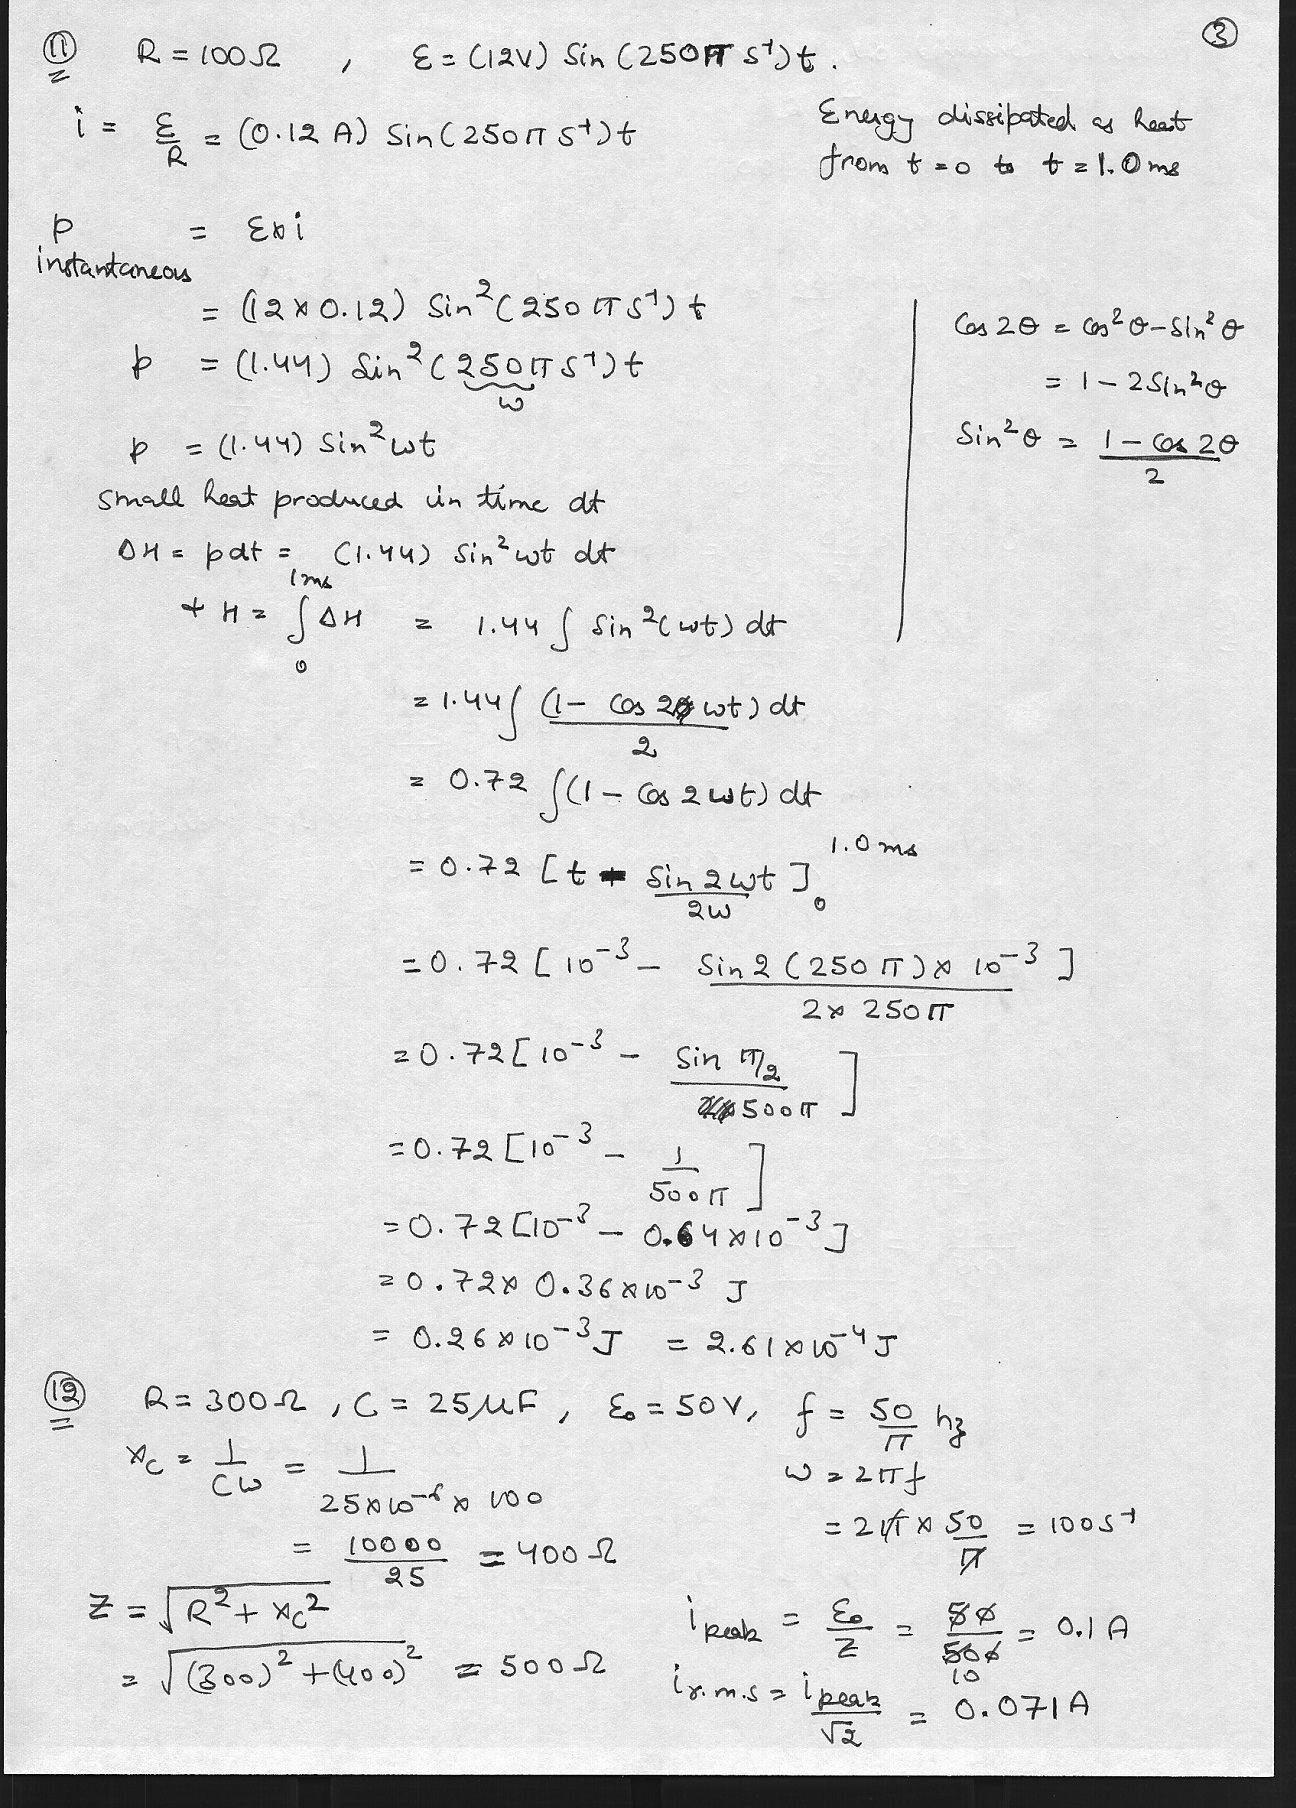 ③
⑪ R = 100Ω , ℰ = (12V) Sin (250π s⁻¹) t .
i = ℰ/R = (0.12 A) Sin (250π s⁻¹) t
Energy dissipated as heat
from t = 0 to t = 1.0 ms
p instantaneous = ℰ × i
= (12 × 0.12) Sin² (250 π s⁻¹) t
p = (1.44) Sin² (250π s⁻¹) t
ω
p = (1.44) Sin² ωt
small heat produced in time dt
ΔH = pdt = (1.44) Sin² ωt dt
+ H = ∫₀^1ms ΔH = 1.44 ∫ Sin² (ωt) dt
= 1.44 ∫ (1 – Cos 2 ωt) dt / 2
= 0.72 ∫ (1 – Cos 2 ωt) dt
= 0.72 [ t - Sin 2ωt / 2ω ]₀^1.0 ms
= 0.72 [ 10⁻³ – Sin 2 (250 π) × 10⁻³ / 2 × 250π ]
= 0.72 [ 10⁻³ – Sin π/2 / 500π ]
= 0.72 [ 10⁻³ – 1 / 500π ]
= 0.72 [ 10⁻³ – 0.64 × 10⁻³ ]
= 0.72 × 0.36 × 10⁻³ J
= 0.26 × 10⁻³ J = 2.61 × 10⁻⁴ J
Cos 2θ = Cos² θ – Sin² θ
= 1 – 2 Sin² θ
Sin² θ = 1 – Cos 2θ / 2
⑫ R = 300Ω , C = 25 μF , ℰ₀ = 50V, f = 50/π hz
Xc = 1/Cω = 1 / 25 × 10⁻⁶ × 100
= 10000 / 25 = 400 Ω
Z = √R² + Xc²
= √(300)² + (400)² = 500 Ω
ω = 2πf
= 2π × 50/π = 100 s⁻¹
i peak = ℰ₀/Z = 50/500 = 0.1 A
10
i r.m.s = i peak / √2 = 0.071 A